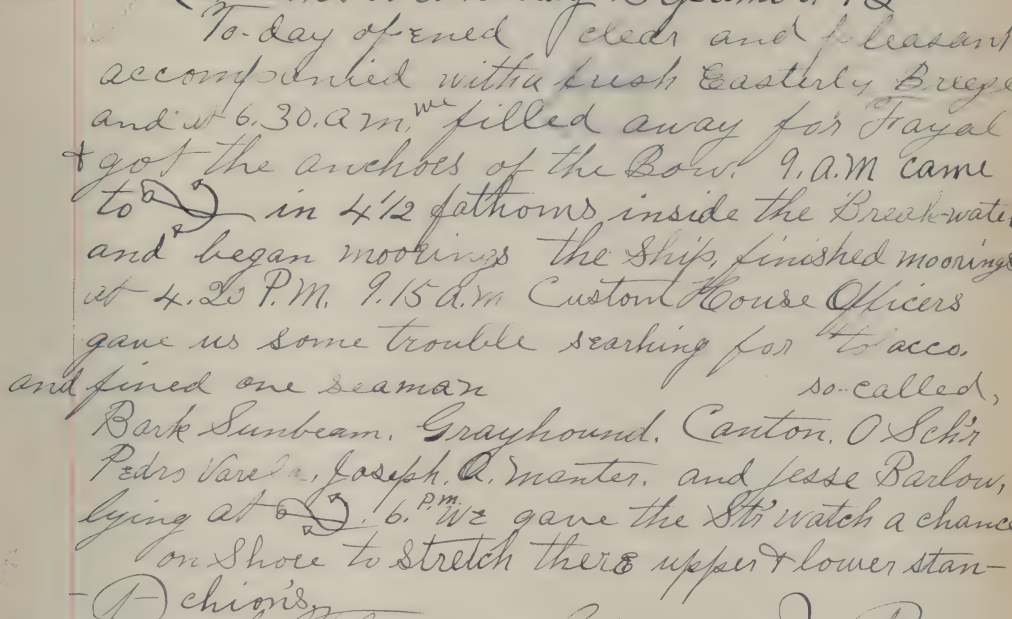 To-day opened clear and pleasant
accompanied with a fresh Easterly Breeze
and at 6.30.a m. we filled away for Fayal
& got the anchoes of the Bow. 9. a.M came
to in 4 1/2 fathoms inside the Break-water
and began moorings the ship, finished moorings
at 4.20 P.M. 9.15 a.m Custom House Officers
gave us some trouble searhing for tobacco.
and fined one seaman so-called,
Bark Sunbeam. Grayhound. Canton. Sch'r
Pedro Varela, Joseph. A. Manter. and Jesse Barlow,
lying at 6. P.M. We gave the St'r watch a chance
on Shore to stretch there upper & lower stan-
chion's.